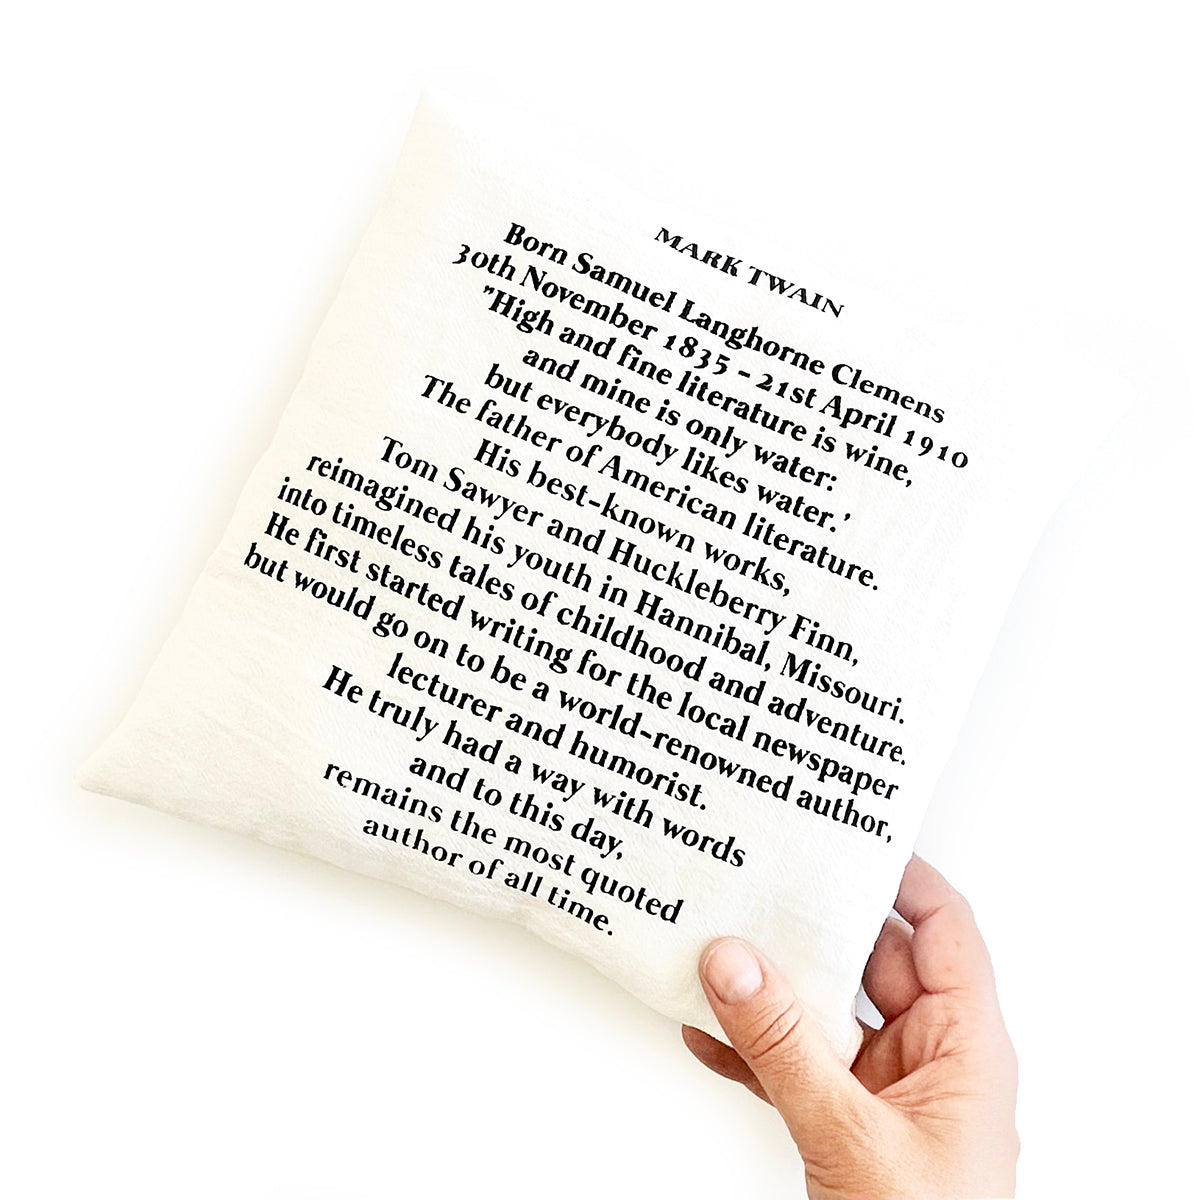 MARK TWAIN
Born Samuel Langhorne Clemens
30th November 1835 - 21st April 1910
"High and fine literature is wine,
and mine is only water:
but everybody likes water.'
The father of American literature.
His best-known works,
Tom Sawyer and Huckleberry Finn,
reimagined his youth in Hannibal, Missouri.
into timeless tales of childhood and adventure.
He first started writing for the local newspaper
but would go on to be a world-renowned author,
lecturer and humorist.
He truly had a way with words
and to this day,
remains the most quoted
author of all time.